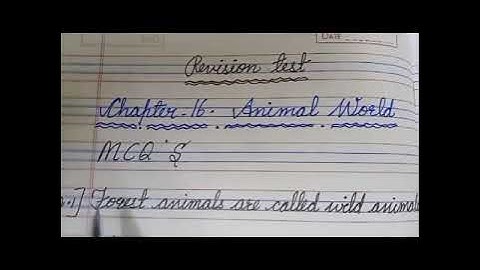 DATE
Revision test
Chapter-16. Animal World
MCQ'S
1] Forest animals are called wild animals